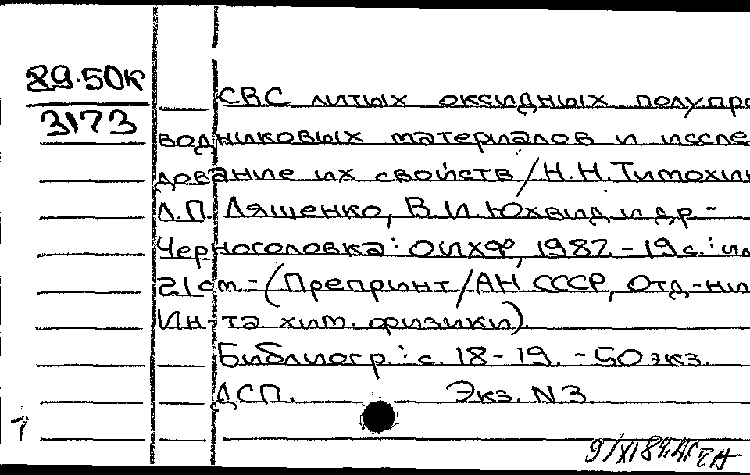 89.50к
3173
СВС литых оксидных полупро
водниковых материалов и иссле
дование их свойств/Н.Н.Тимохин
Л.П. Лященко, В.И.Юхвид и др.-
Черноголовка: ОИХФ, 1987.-19с.:ил
21см.-(Препринт/АН СССР, Отд-ние
Ин-та хим. физики).
Библиогр.: с. 18-19. -50экз.
ДСП. Экз. N3.
1